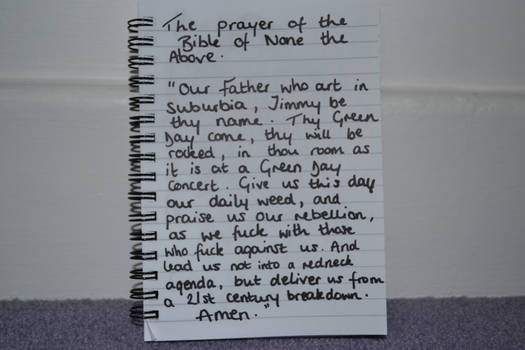 The prayer of the
Bible of None the
Above.
"Our Father who art in
suburbia, Jimmy be
thy name. Thy Green
Day come, thy will be
rocked, in thou room as
it is at a Green Day
concert. Give us this day
our daily weed, and
praise us our rebellion,
as we fuck with those
who fuck against us. And
lead us not into a redneck
agenda, but deliver us from
a 21st century breakdown.
Amen."